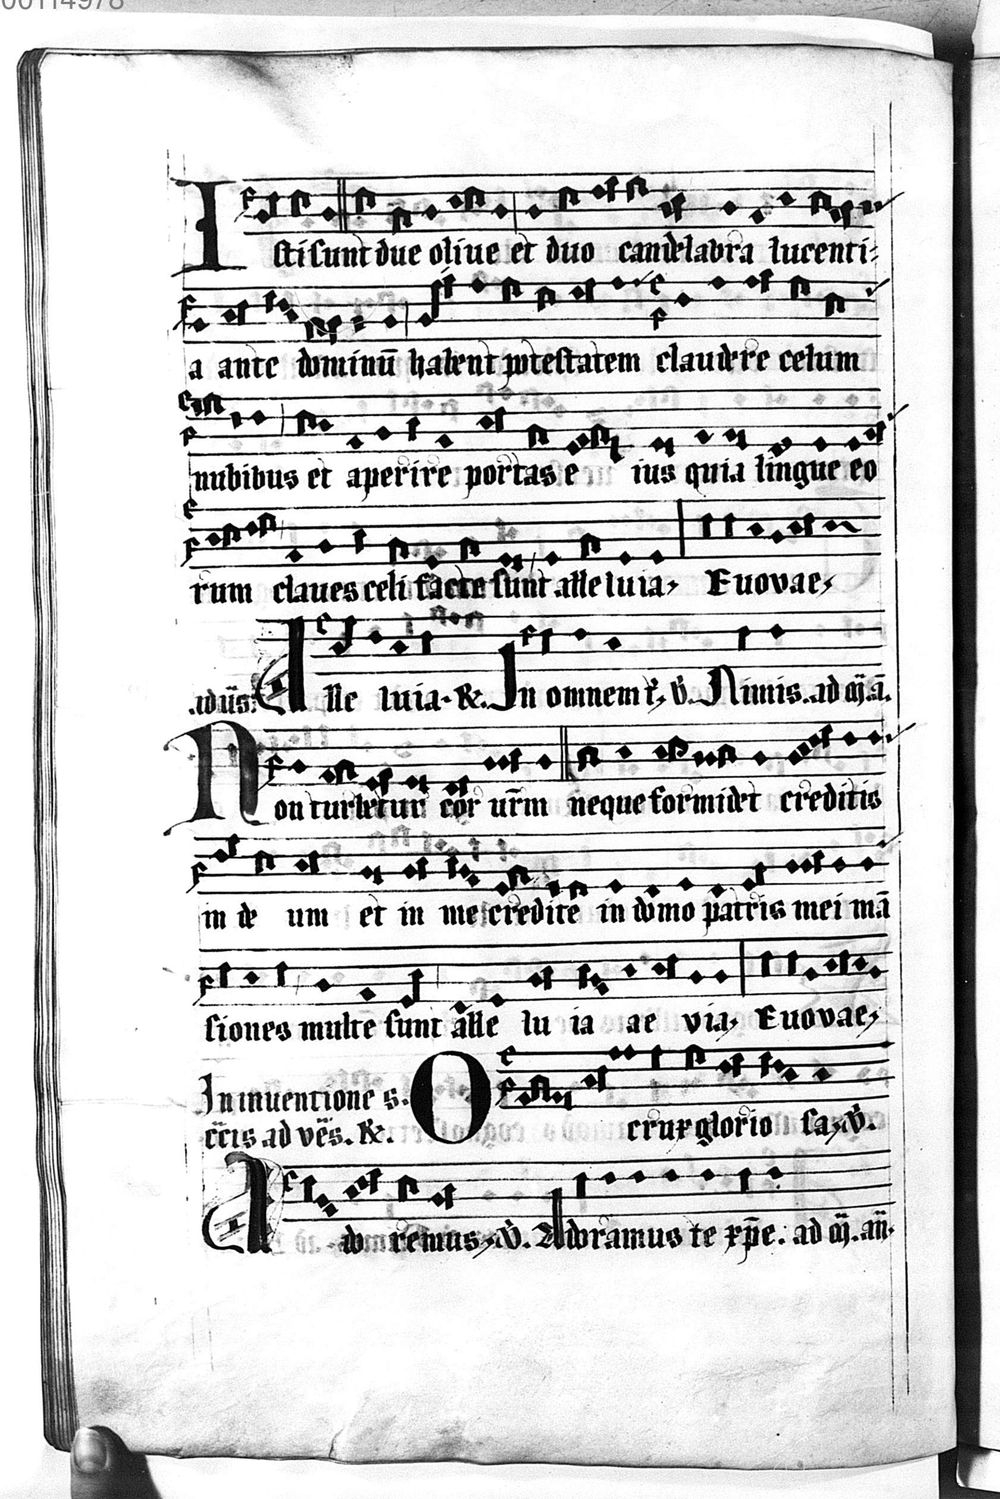 00114978
Isti sunt due oliue et duo candelabra lucenti-
a ante dominū habent potestatem claudere celum
nubibus et aperire portas e ius quia lingue eo
rum claues celi facte sunt alle luia, Euovae,
Alle luia. R. In omnem t, v. Nimis. ad m. a.
Non turbetur cor urm neque formidet creditis
in de um et in me credite in domo patris mei mā
siones multe sunt alle lu ia ae via, Euovae,
In inuentione s.
ccis ad ves. R. O crux glorio sa, v.
Ado remus, v. Adoramus te xpe. ad m. an.